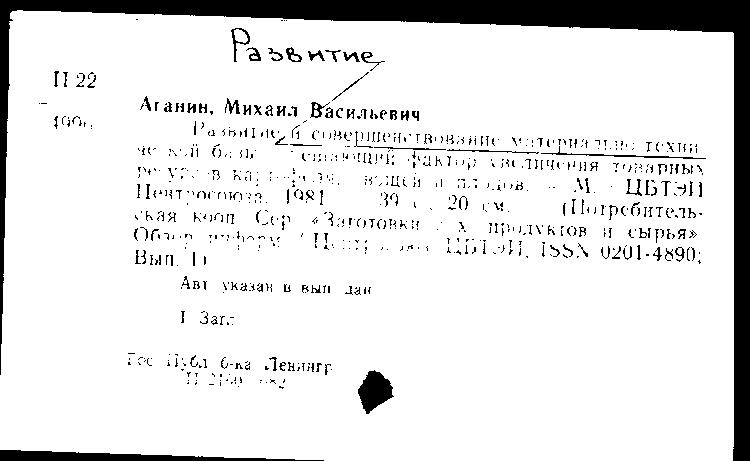 Развитие
П 22
Аганин, Михаил Васильевич
Развитие и совершенствование материально-техни-
ческой базы решающий фактор увеличения товарных
вощей и плодов. - М. ЦБТЭИ
Центросоюза, 1981 39 с. 20 см. (Потребитель-
ская кооп. Сер. «Заготовки с.-х. продуктов и сырья»
Обзор. информ. ЦБТЭИ, ISSN 0201-4890;
Вып. 1)
Авт. указан в вып. дан.
I. Загл.
Гос. Публ. б-ка Ленингр.